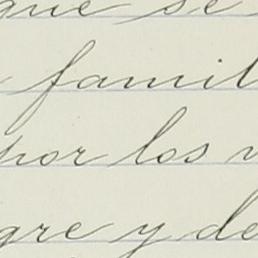 que se
famil
por los v
gre y de